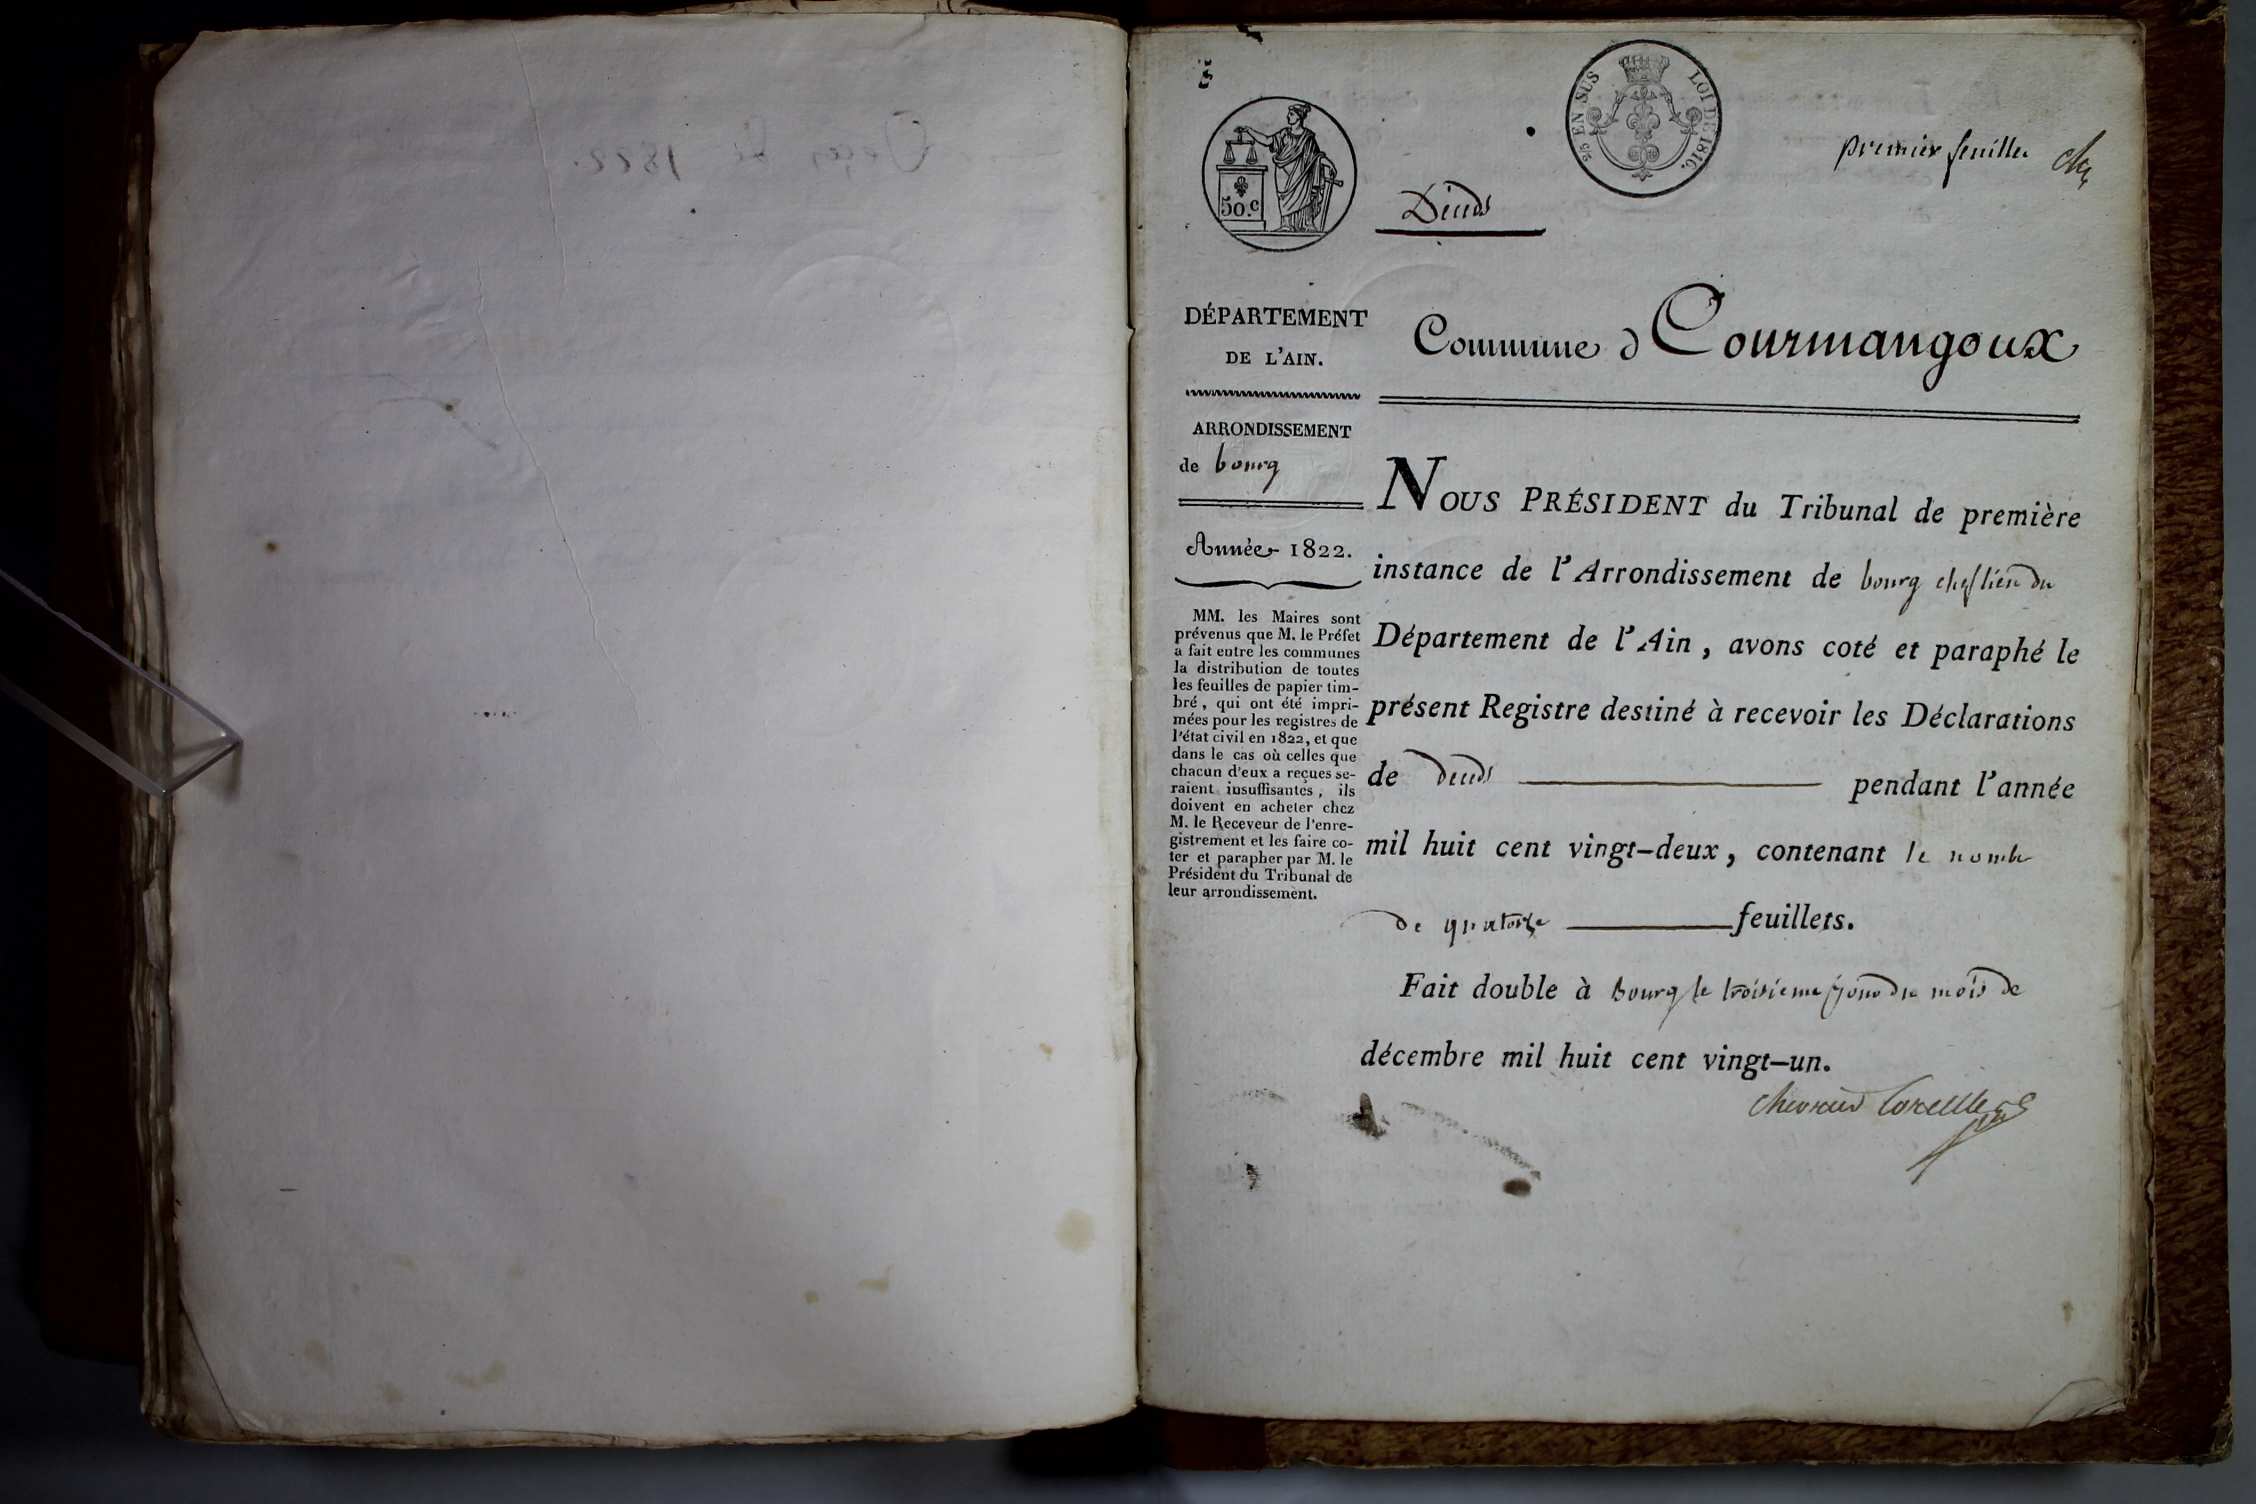 Décès de 1822.
2/5 EN SUS LOI DE 1816.
premier feuillet
50.c
Décès
DÉPARTEMENT
DE L'AIN.
Commune d Courmangoux
ARRONDISSEMENT
de bourg
Année 1822.
MM. les Maires sont
prévenus que M. le Préfet
a fait entre les communes
la distribution de toutes
les feuilles de papier tim-
bré, qui ont été impri-
mées pour les registres de
l'état civil en 1822, et que
dans le cas où celles que
chacun d'eux a reçues se-
raient insuffisantes, ils
doivent en acheter chez
M. le Receveur de l'enre-
gistrement et les faire co-
ter et parapher par M. le
Président du Tribunal de
leur arrondissement.
NOUS PRÉSIDENT du Tribunal de première
instance de l'Arrondissement de bourg chef lieu du
Département de l'Ain, avons coté et paraphé le
présent Registre destiné à recevoir les Déclarations
de décès pendant l'année
mil huit cent vingt-deux, contenant le nombre
de quatorze feuillets.
Fait double à Bourg le troisieme jour du mois de
décembre mil huit cent vingt-un.